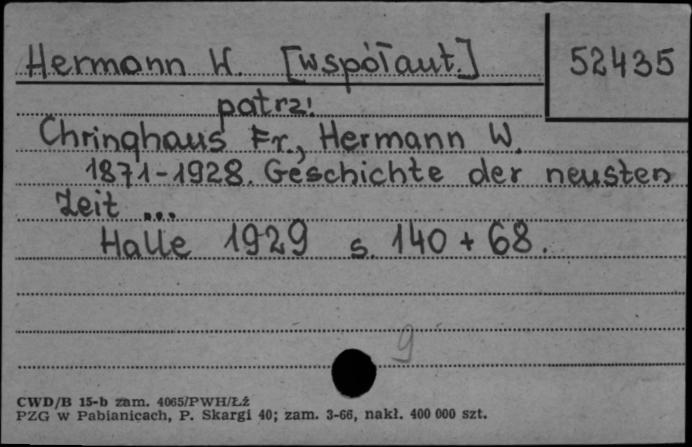 Hermann W. [współaut.]
52435
patrz!
Chringhaus Fr., Hermann W.
1871-1928. Geschichte der neusten
Zeit ...
Halle 1929 s. 140 + 68.
9
CWD/B 15-b zam. 4065/PWH/Łż
PZG w Pabianicach, P. Skargi 40; zam. 3-66, nakł. 400 000 szt.